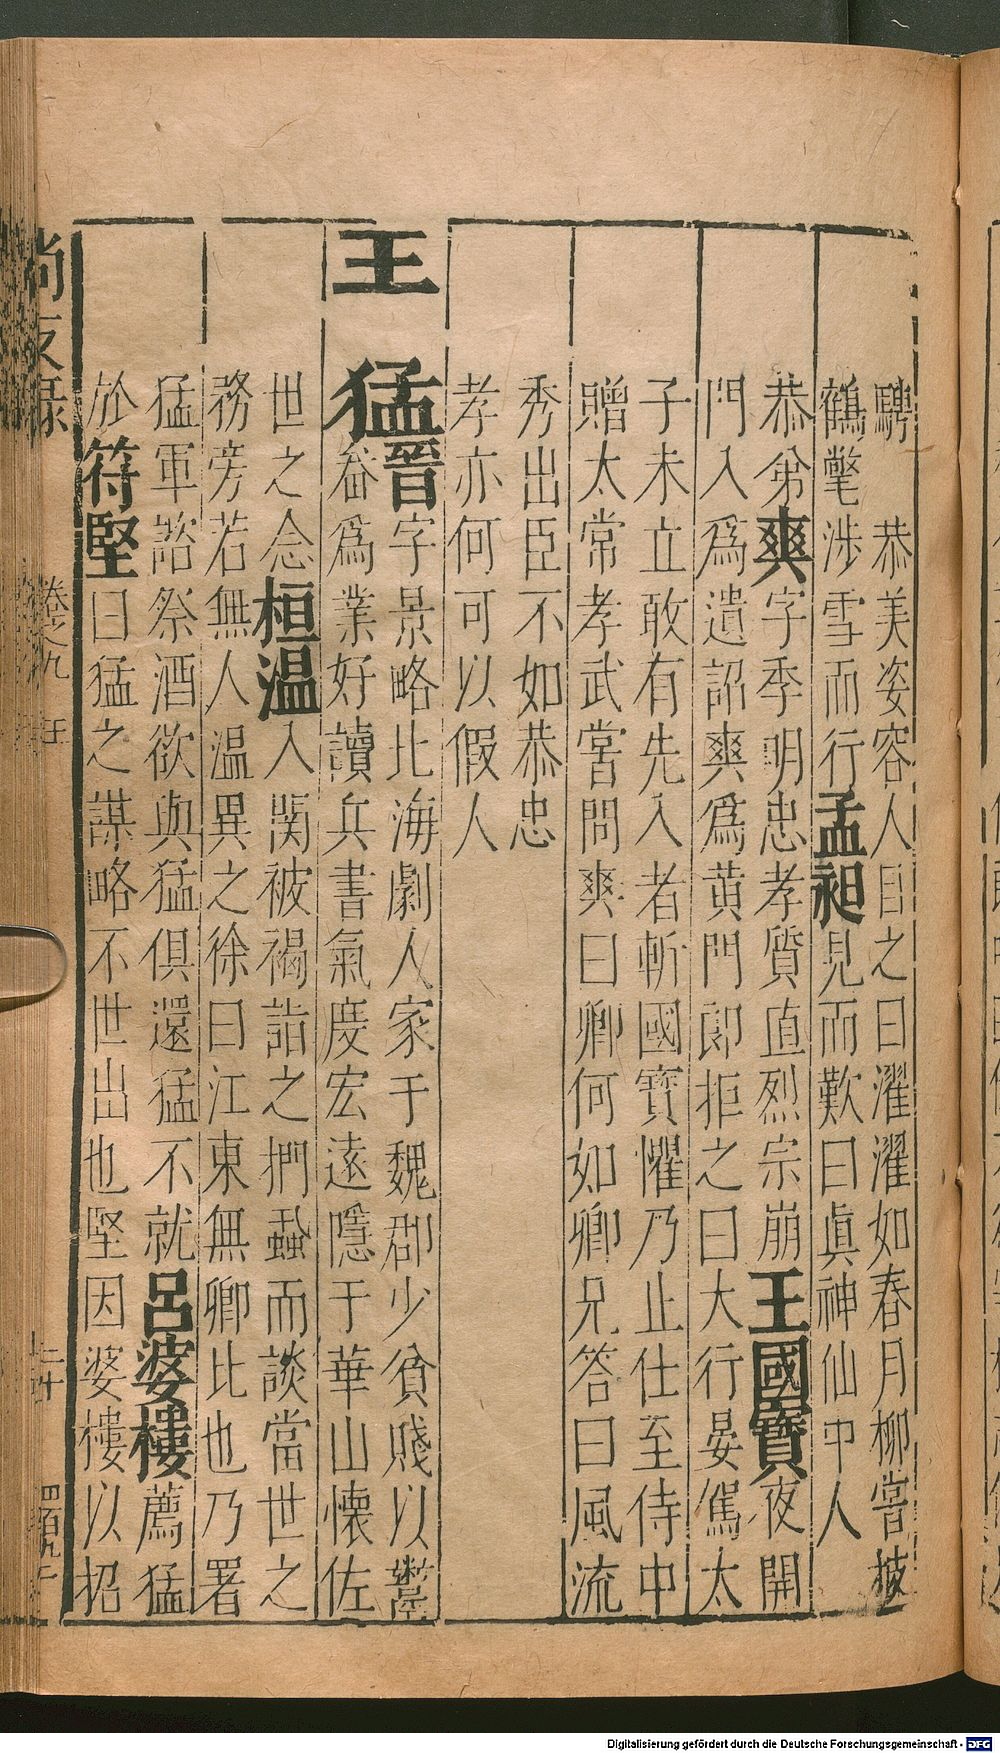 騁　恭美姿容人目之曰濯濯如春月柳嘗披
鶴氅涉雪而行孟昶見而歎曰眞神仙中人
恭弟爽字季明忠孝質直烈宗崩王國寶夜開
門入爲遺詔爽爲黄門郎拒之曰大行晏駕太
子未立敢有先入者斬國寶懼乃止仕至侍中
贈太常孝武嘗問爽曰卿何如卿兄答曰風流
秀出臣不如恭忠
孝亦何可以假人
王猛
晉字景略北海劇人家于魏郡少貧賤以鬻
畚爲業好讀兵書氣度宏遠隱于華山懷佐
世之念桓温入関被褐詣之捫蝨而談當世之
務旁若無人温異之徐曰江東無卿比也乃署
猛軍諮祭酒欲與猛俱還猛不就呂婆樓薦猛
於符堅曰猛之謀略不世出也堅因婆樓以招
尚友録　卷之九　王　二十
Digitalisierung gefördert durch die Deutsche Forschungsgemeinschaft - DFG